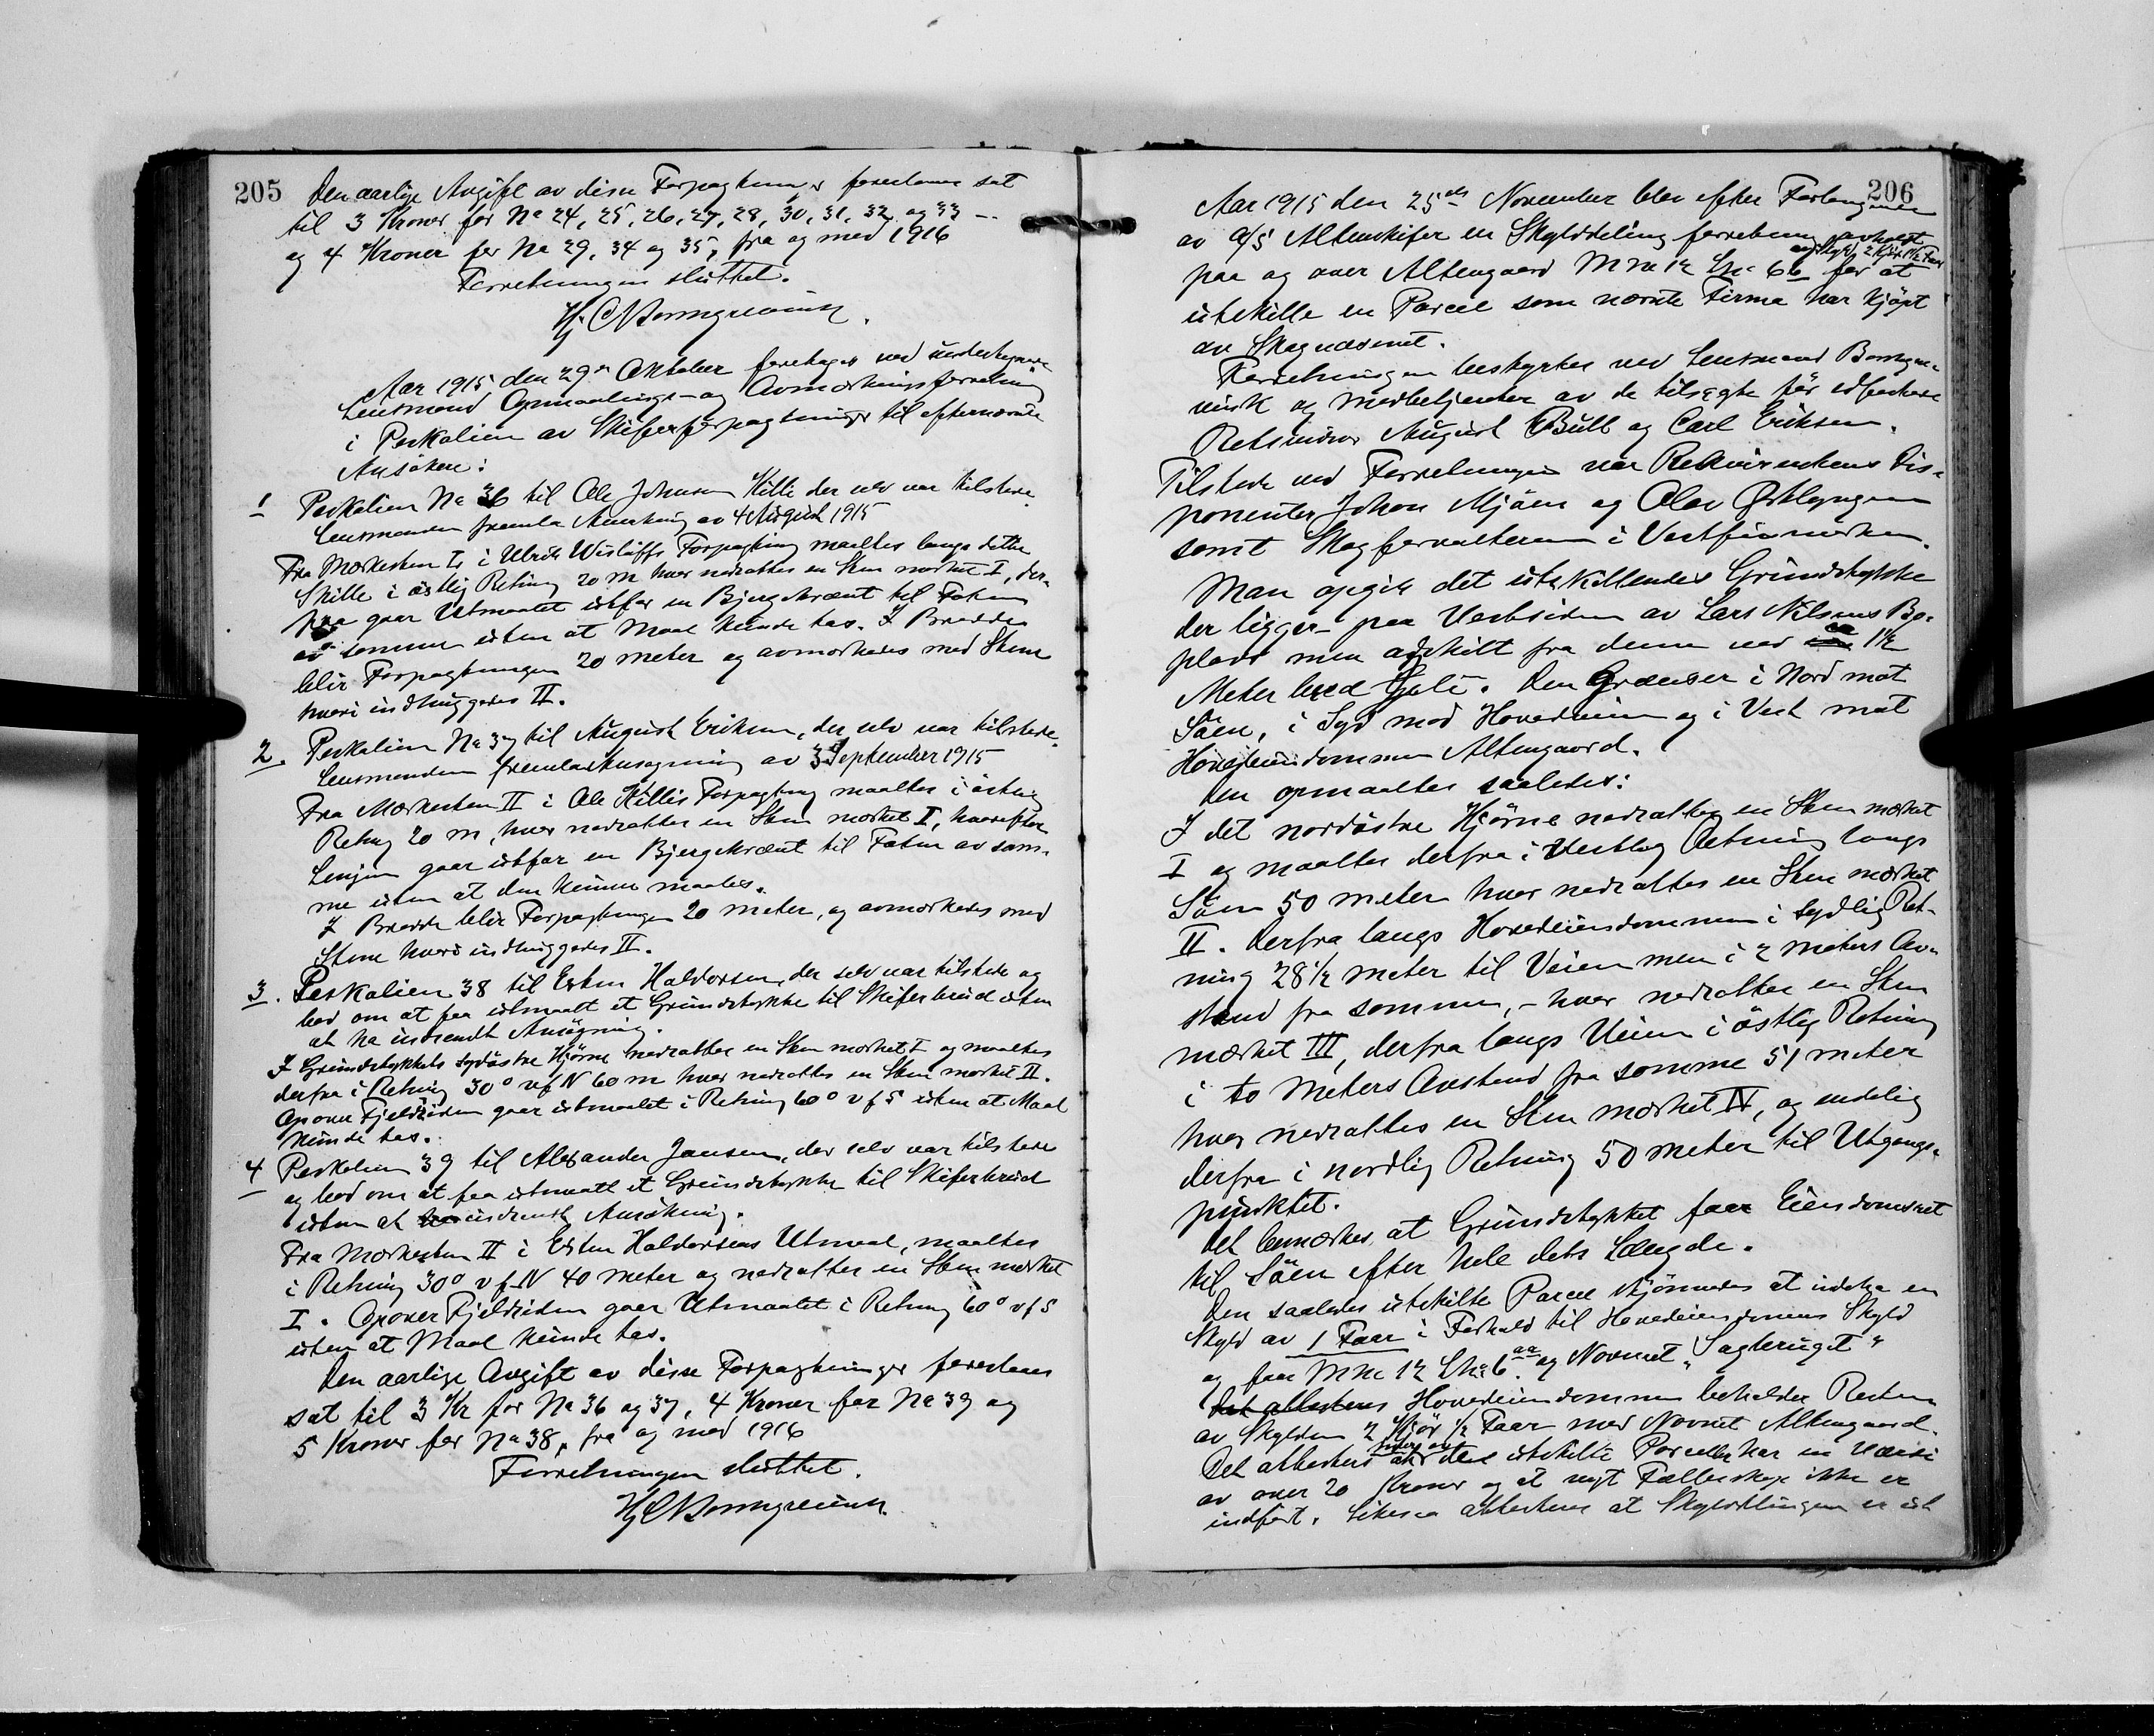 205
Den aarlige Avgift av disse Forpagtninger foreslaaes sat
til 3 Kroner for No 24, 25, 26, 27, 28, 30, 31, 32 og 33 -
og 4 Kroner for No 29, 34 og 35, fra og med 1916
Forretningen sluttet.
Aar 1915 den 29de Oktober foretages ved undertegnede
Lensmand Opmaalings- og Avmerkningsforretning
i Peskalien av Skiferforpagtninger til efternævnte
Ansökere:
1 Peskalien No 36 til Ole Johnsen Kitti der selv var tilstede.
Lensmanden fremla Anmerkning av 4 August 1915
Fra Merkesten II i Ulrik Wisløffs Forpagtning maaltes langs dette
Skille i östlig Retning 20 m hvor nedsattes en Sten merket I, der-
fra gaar Utmaalet utfor en Bjergskrænt til Foten
av samme uten at Maal kunde tas. I Bredde
blir Forpagtningen 20 meter og avmerkedes med Stene
hvori indhuggedes II.
2. Peskalien No 37 til August Eriksen, der selv var tilstede.
Lensmanden fremla Ansøgning av 3 September 1915
Fra Merkesten II i Ole Kittis Forpagtning maaltes i östlig
Retng 20 m, hvor nedsattes en Sten merket I, hvorefter
Linjen gaar utfor en Bjergskrænt til Foten av sam-
me uten at den kunne maales.
I Bredde blir Forpagtningen 20 meter, og avmerkedes med
Stene hvori indhuggedes II.
3. Peskalien 38 til Esten Haldorsen, der selv var tilstede og
bad om at faa utmaalt et Grundstykke til Skiferbrud uten
at ha indsendt Ansögning.
I Grundstykkets sydöstre Hjörne nedsattes en Sten merket I og maaltes
derfra i Retning 30° vf N 60 m hvor nedsattes en Sten merket II.
Opover Fjeldsiden gaar utmaalet i Retning 60° v f S uten at Maal
kunde tas.
4 Peskalien 39 til Alexander Jansen, der selv var tilstede
og bad om at faa utmaalt et Grundstykke til Skiferbrud
uten at ha indsendt Ansökning.
Fra Merkesten II i Esten Haldorsens Utmaal, maaltes
i Retning 30° v f N 40 meter og nedsattes en Sten merket
I. Opover Fjeldsiden gaar Utmaalet i Retning 60° v f S
uten at Maal kunde tas.
Den aarlige Avgift av disse Forpagtninger foreslaaes
sat til 3 Kr for No 36 og 37, 4 Kroner for No 39 og
5 Kroner for No 38, fra og med 1916
Forretningen sluttet.
206
Aar 1915 den 25de November blev efter Forlangende
av A/S Altenskifer en Skylddelingsforretning avholdt
paa og over Altengaard M No 12 L No 6b av Skyld 2 Kjör 1½ Faar for at
utskille en Parcel som nævnte Firma har kjöpt
av Skogvæsenet.
Forretningen bestyrtes ved Lensmand Borchgre-
vink og Medbetjenter av de tilsagte før edfæstede
Retsvidner August Bull og Carl Eriksen.
Tilstede ved Forretningen var Rekvirentens Dis-
ponenter, Johan Mjöen og Olav Østlyngen
samt Skogforvalteren i Vestfinmarken.
Man opgik det utskillende Grundstykke
der ligger paa Vestsiden av Lars Nilsens Bo-
plads men adskilt fra denne ved ca 12
Meter bred Gate. Den Grænser i Nord mot
Söen, i Syd mod Hovedveien og i Vest mot
Hovedeiendommen Altengaard.
Den opmaaltes saaledes:
I det nordöstre Hjörne nedsattes en Sten merket
I og maaltes derfra i Vestlig Retning langs
Söen 50 meter hvor nedsattes en Sten merket
II. Derfra langs Hovedeiendommen i Sydlig Ret-
ning 28½ meter til Veien men i 2 meters Av-
stand fra samme, - hvor nedsattes en Sten
merket III, derfra langs Veien i östlig Retning
i to Meters Avstand fra samme 51 meter
hvor nedsattes en Sten merket IV, og endelig
derfra i nordlig Retning 50 meter til Utgangs-
punktet.
Det bemerkes at Grundstykket faar Eiendomsret
til Söen efter hele dets Længde.
Den saaledes utskilte Parcel skjönnedes at indeha en
Skyld av 1 Faar i Forhold til Hovedeiendommens Skyld
og faar M No 12 L No 6aa og Navnet "Sagbruget"
Det attesteres Hovedeiendommen beholder Resten
av Skylden 2 Kjör ½ Faar med Navnet Altengaard.
Det attesteres at den utskilte Parcel har en Værdi
av over 20 Kroner og at nyt Fællesskap ikke er
indfört. Likesaa attesteres at Skylddelingen er ut